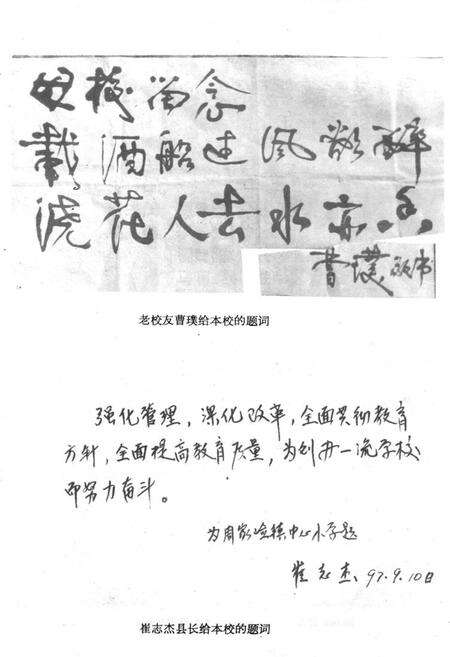 母校留念
载酒船过风欲醉
浇花人去水亦香
曹璞敬书
老校友曹璞给本校的题词
强化管理，深化改革，全面贯彻教育
方针，全面提高教育质量，为创办一流学校
而努力奋斗。
为周家崄镇中心小学题
崔志杰、97.9.10日
崔志杰县长给本校的题词